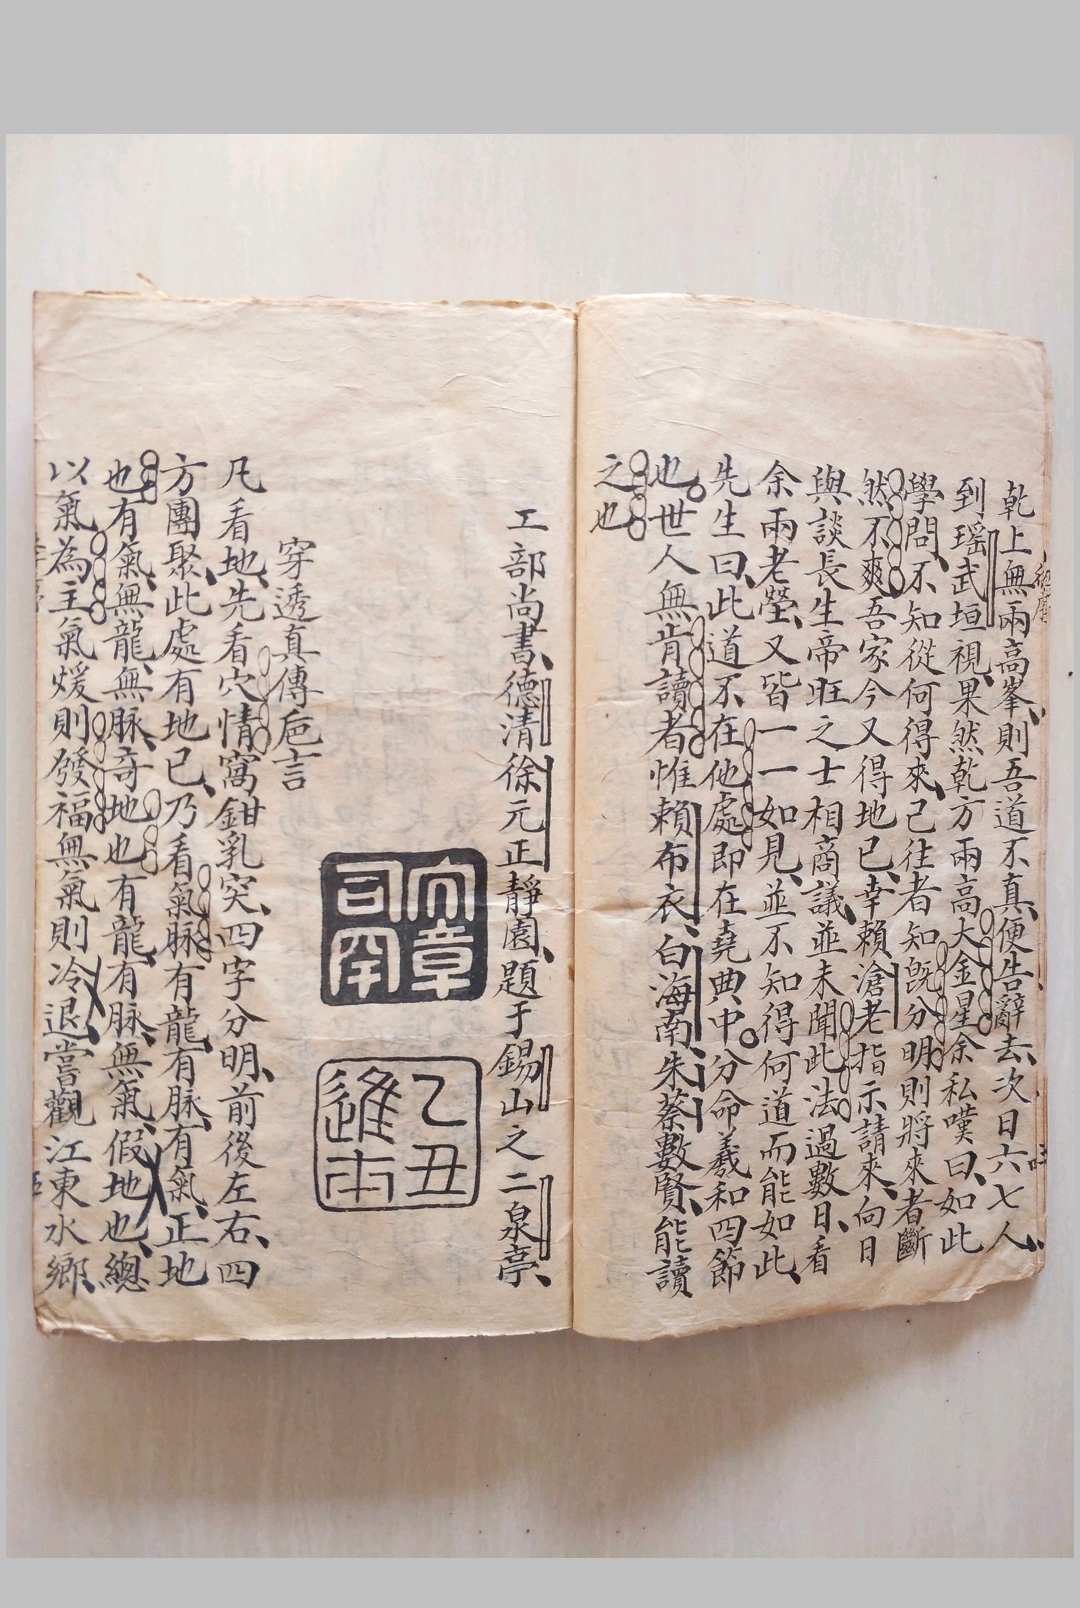 乾上無兩高峯則吾道不真便告辭去次日六七人
到瑶武垣視果然乾方兩高大金星余私嘆曰如此
學問不知從何得來己往者知既分明則將來者斷
然不爽吾家今又得地已幸賴滄老指示請來向日
與談長生帝旺之士相商議並未聞此法過數日看
余兩老塋又皆一一如見並不知得何道而能如此
先生曰此道不在他處即在堯典中分命羲和四節
也世人無肯讀者惟賴布衣白海南朱蔡數賢能讀
之也
工部尚書德清徐元正靜園題于錫山之二泉亭
乙丑進士
穿透真傳巵言
凡看地先看穴情窩鉗乳突四字分明前後左右四
方團聚此處有地已乃看氣脉有龍有脉有氣正地
也有氣無龍無脉奇地也有龍有脉無氣假地也總
以氣為主氣煖則發福無氣則冷退嘗觀江東水鄉